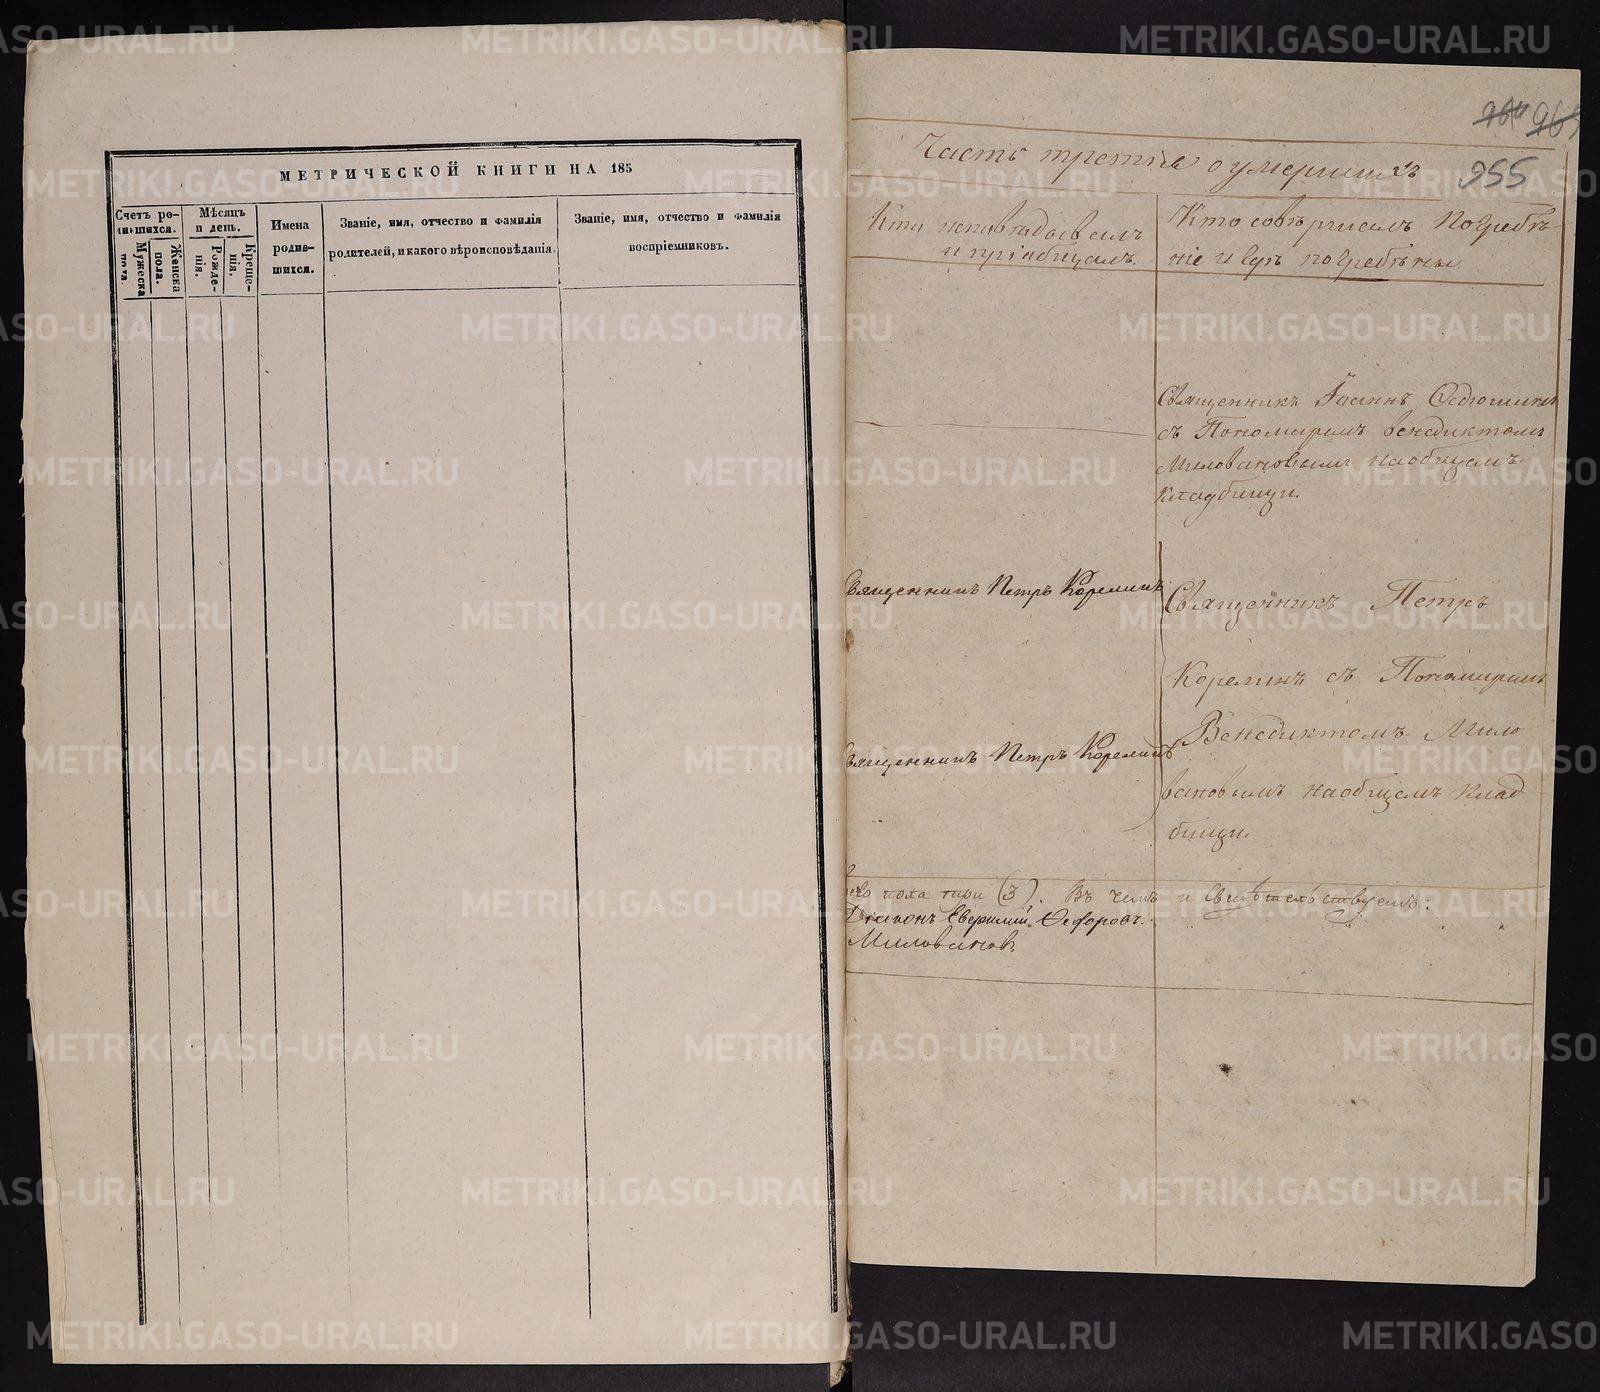 МЕТРИЧЕСКОЙ КНИГИ НА 185
Счетъ ро-
дившихся.
Мужеска
пола.
Женска
пола.
Мѣсяцъ
и день.
Рожде-
нія.
Креще-
нія.
Имена
родив-
шихся.
Званіе, имя, отчество и фамилія
родителей, и какого вѣроисповѣданія.
Званіе, имя, отчество и фамилія
воспріемниковъ.
964 965
955
Часть третія о умершихъ
Кто исповѣдывалъ
и пріобщалъ.
Кто совершалъ погребе
ніе и гдѣ погребены
Священникъ Іоаннъ
съ Пономаремъ Венедиктомъ
Миловановымъ на общемъ
кладбищи.
Священникъ Петръ Корелинъ
Священникъ Петръ
Корелинъ съ Пономаремъ
Венедиктомъ Мило
вановымъ на общемъ клад
бищи.
Священникъ Петръ Корелинъ
пола три (3). Въ чемъ и свидѣтельствуемъ:
Діаконъ Евфимій Федоровъ.
Миловановъ.
METRIKI.GASO-URAL.RU